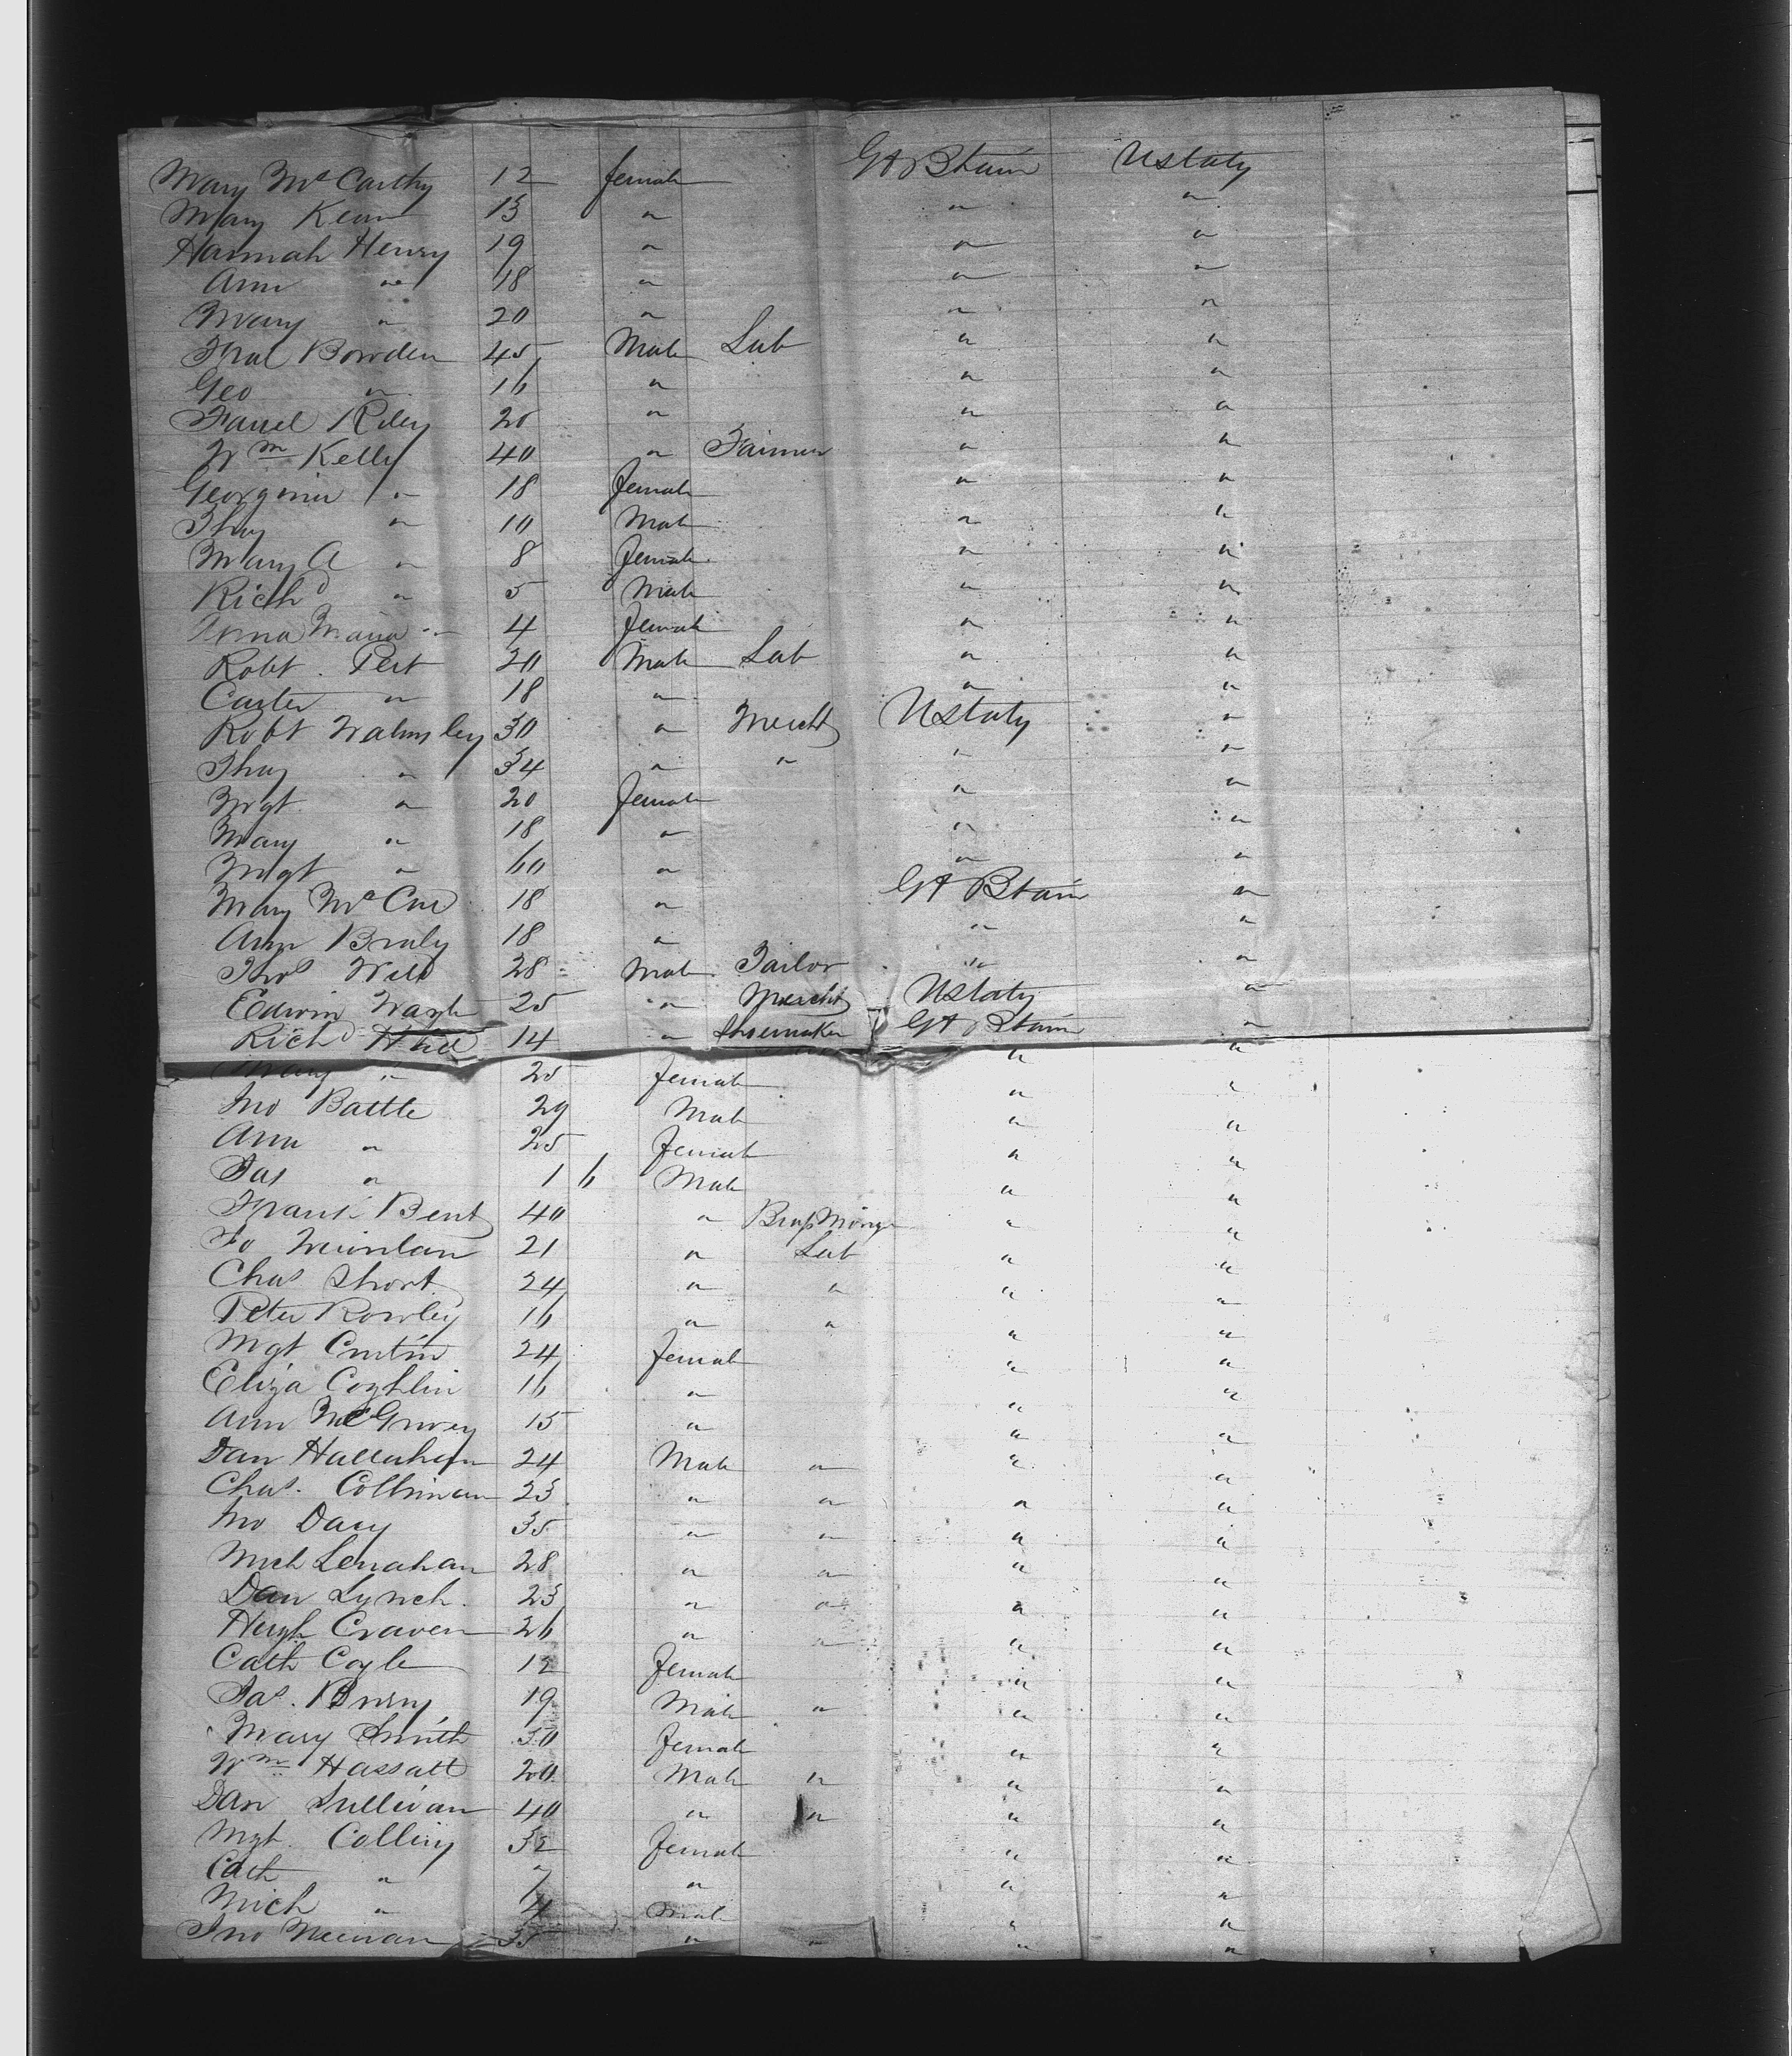 Mary McCarthy 12 female Gt Btain Ustates
Mary Kean 13 " " "
Hannah Henry 19 " " "
Ann " 18 " " "
Mary " 20 " " "
Bowden 45 Male Lab " "
Geo " 16 " " "
Farrel Riley 20 " " "
Wm Kelly 40 " Farmer " "
Georgina " 18 female " "
Thos " 10 Male " "
Mary A " 8 female " "
Richd " 5 Male " "
Anna Maria " 4 female " "
Robt Pert 20 Male Lab " "
Carter " 18 " " "
Robt Walmsley 30 " Mercht Ustates "
Thos " 34 " " " "
Mgt " 20 female " "
Mary " 18 " " "
Mgt " 60 " " "
Mary McCue 18 " Gt Btain "
Ann Braly 18 " " "
Thos Wild 28 Male Tailor " "
Edwin 25 " Mercht Ustates "
Richd Hill 14 " Shoemaker Gt Btain "
Mary " 25 female " "
Jno Battle 29 Male " "
Ann " 25 female " "
Jas " 1 6 Male " "
Frank Bent 40 " " "
Jo Quinlan 21 " Lab " "
Chas Short 24 " " " "
Peter Rowley 16 " " " "
Mgt Curtin 24 female " "
Eliza Coghlin 16 " " "
Ann McGivrey 15 " " "
Dan Hallahan 24 Male " " "
Chas. Collinan 23 " " " "
Jno Dacy 35 " " " "
Mich Lenahan 28 " " " "
Dan Lynch 23 " " " "
Hugh Craven 26 " " " "
Cath Coyle 12 female " "
Jas. 19 Male " " "
Mary Smith 30 female " "
Wm Hassatt 20 Male " " "
Dan Sullivan 40 " " " "
Mgt. Collins 32 female " "
Cath " 7 " " "
Mich " 4 Male " "
Jno Neenan 35 " " " "